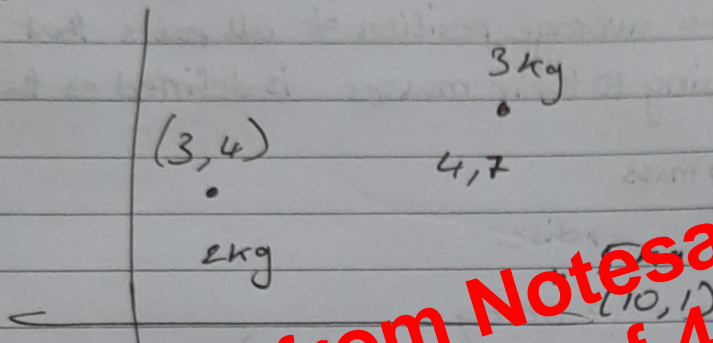 3kg
(3,4)
4,7
2kg
(10,1)
from Notesa
of 4